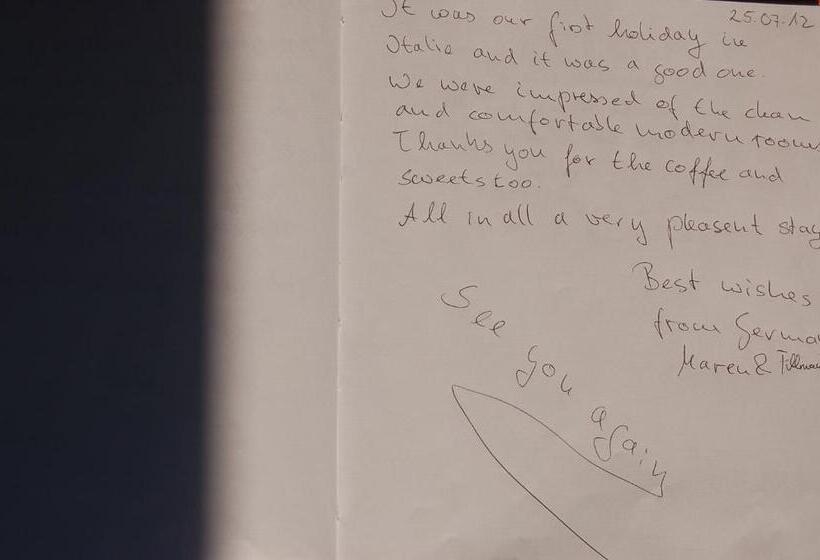 25.07.12
It was our first holiday in
Italie and it was a good one.
We were impressed of the clean
and comfortable modern rooms
Thanks you for the coffee and
sweets too.
All in all a very pleasent stay
Best wishes
from Germa
Maren & Tillma
See you again